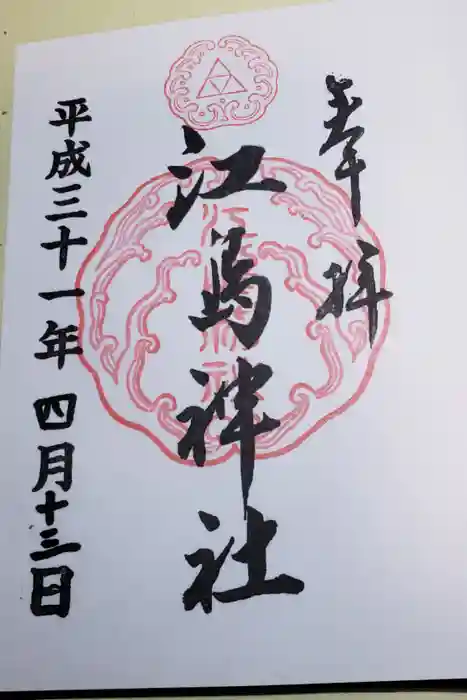 奉拝
江島神社
平成三十一年 四月十三日